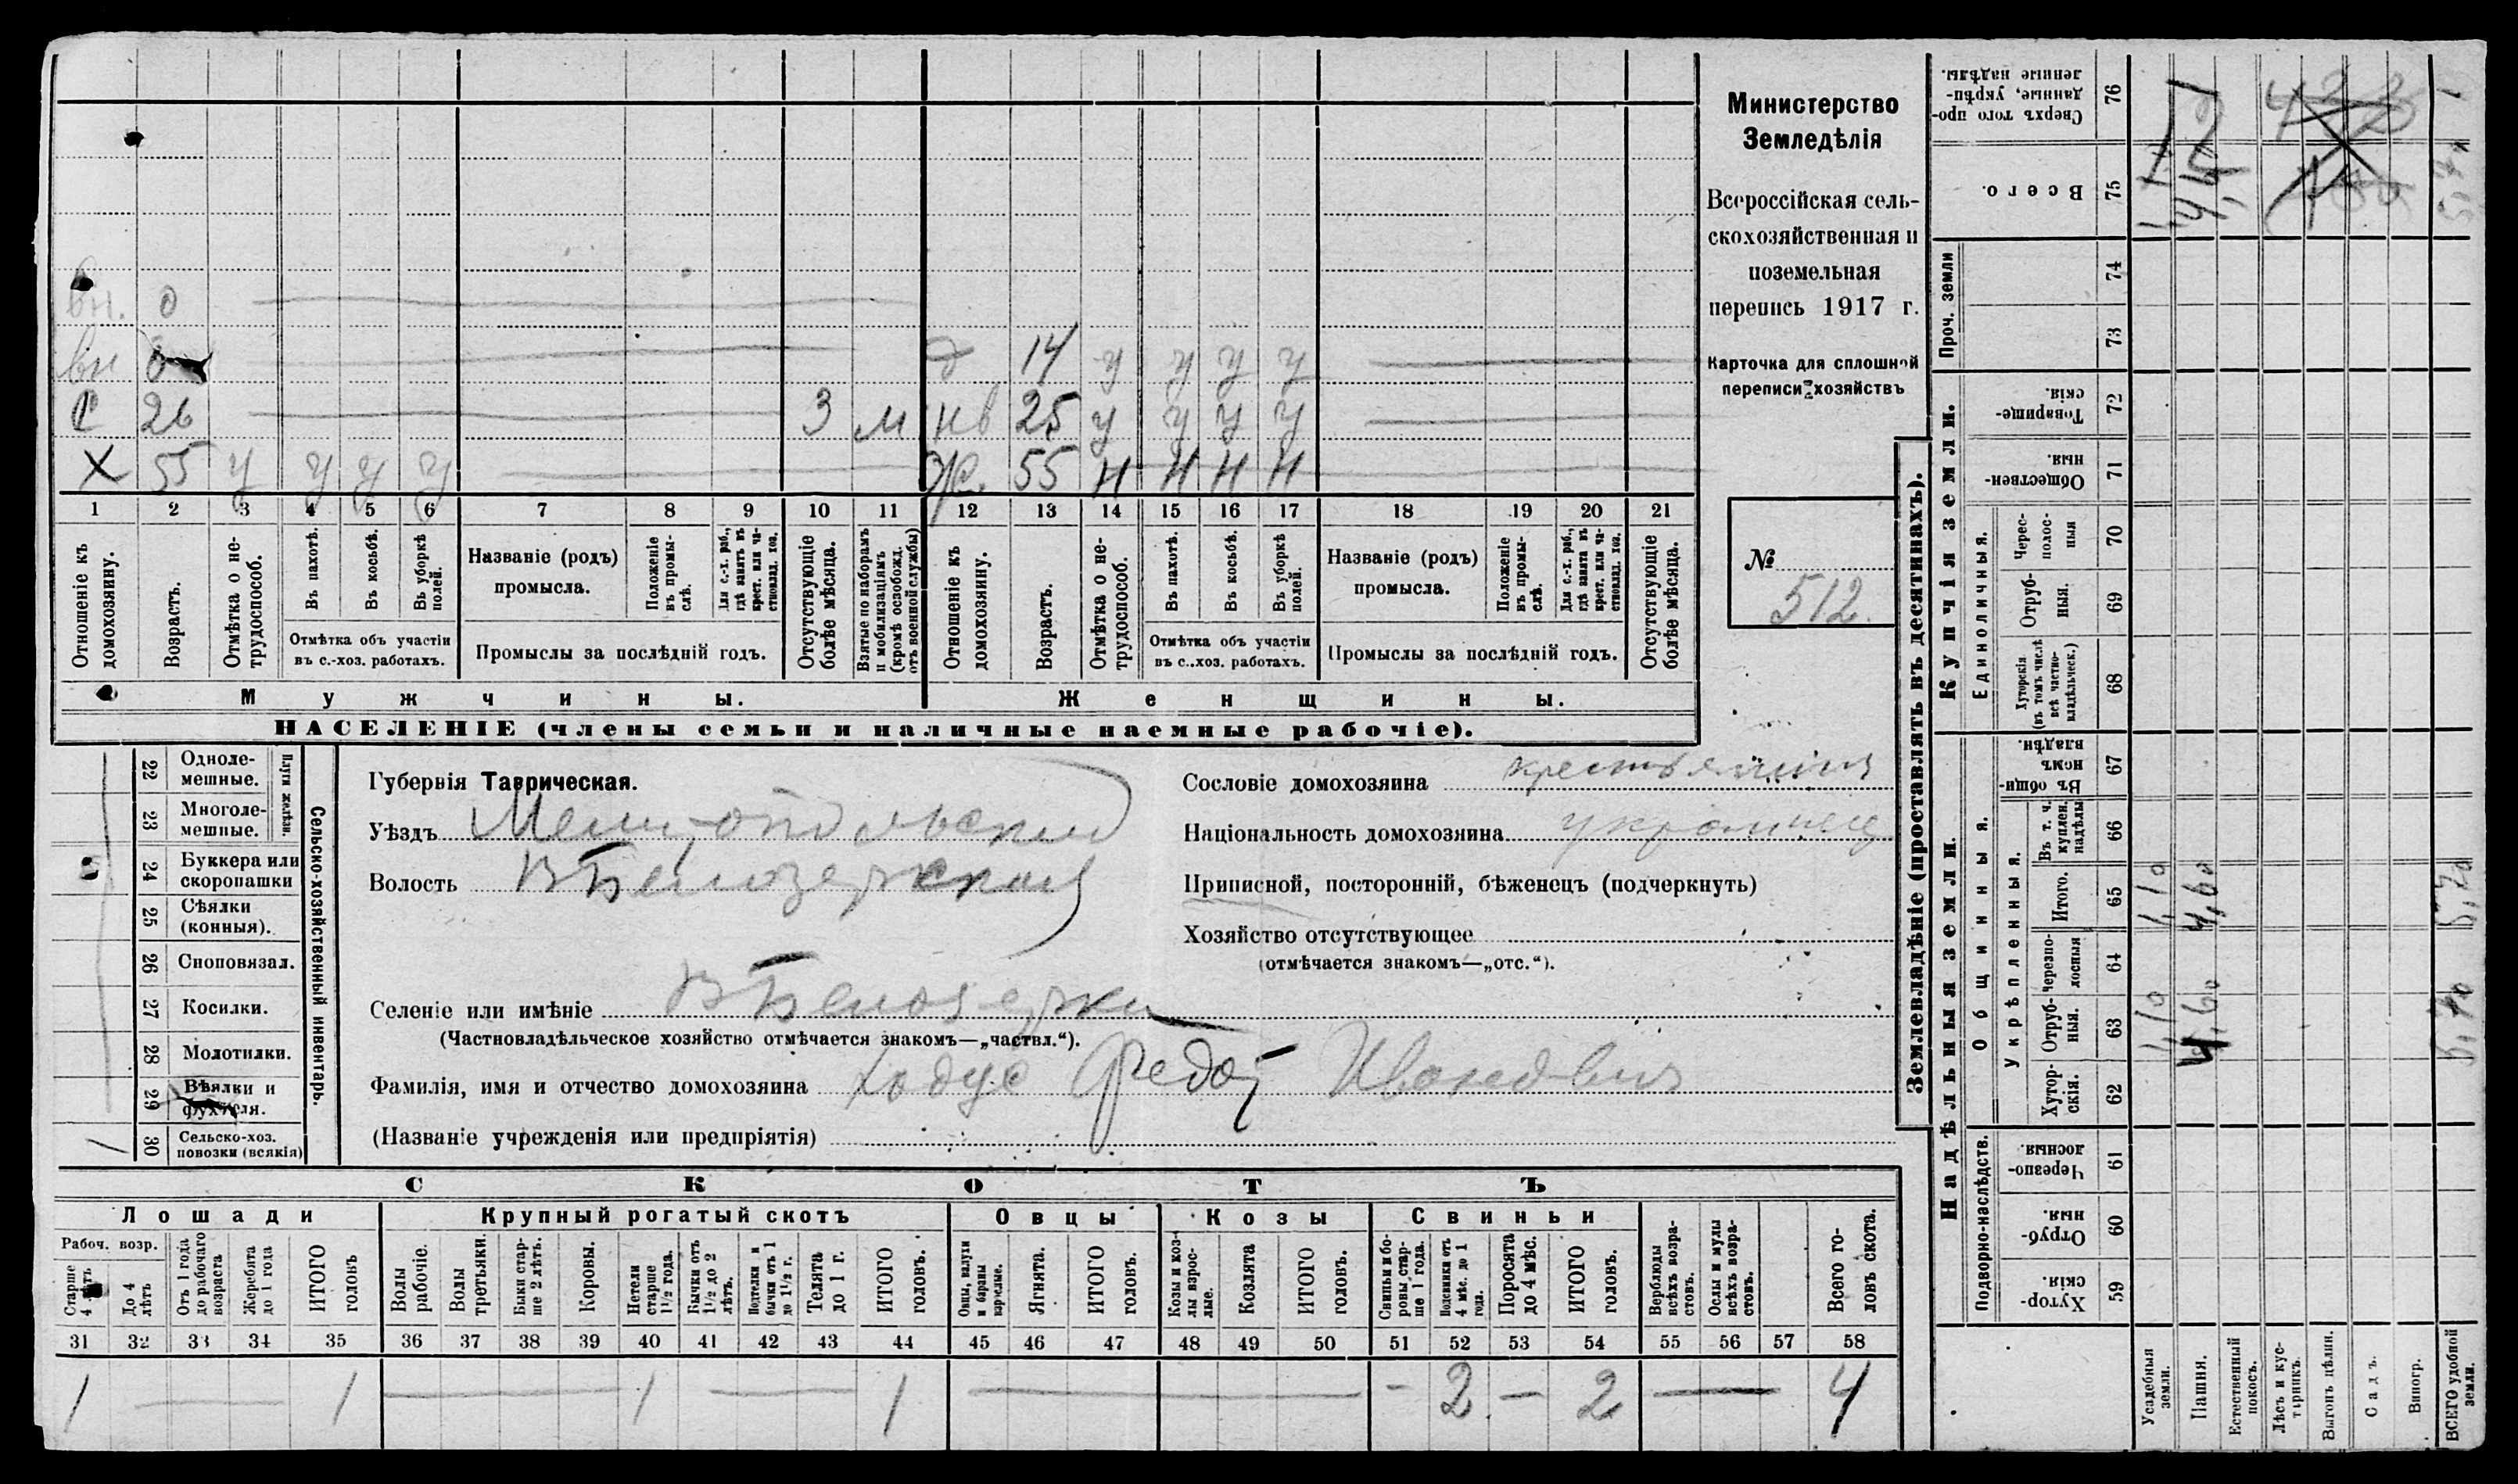 вн. 0
вн
14 у у у у
С 26 3 м нв 25 у у у у
Х 55 у у у у Ж. 55 н н н н
1 2 3 4 5 6 7 8 9 10 11 12 13 14 15 16 17 18 19 20 21
Отношеніе къ домохозяину.
Возрастъ.
Отмѣтка о нетрудоспособ.
Въ пахотѣ.
Въ косьбѣ.
Въ уборкѣ полей.
Отмѣтка объ участіи
въ с.-хоз. работахъ.
Названіе (родъ)
промысла.
Положеніе въ промыслѣ.
Для с.-х. раб., гдѣ занятъ въ крест. или частновлад. хоз.
Промыслы за послѣдній годъ.
Отсутствующіе болѣе мѣсяца.
Взятые по наборамъ и мобилизаціямъ (кромѣ освобожд. отъ военной службы)
Отношеніе къ домохозяину.
Возрастъ.
Отмѣтка о нетрудоспособ.
Въ пахотѣ.
Въ косьбѣ.
Въ уборкѣ полей.
Отмѣтка объ участіи
въ с..хоз. работахъ.
Названіе (родъ)
промысла.
Положеніе въ промыслѣ.
Для с.-х. раб., гдѣ занята въ крест. или частновлад. хоз.
Промыслы за послѣдній годъ.
Отсутствующіе болѣе мѣсяца.
Мужчины.
Женщины.
НАСЕЛЕНІЕ (члены семьи и наличные наемные рабочіе).
Министерство
Земледѣлія
Всероссійская сель-
скохозяйственная и
поземельная
перепись 1917 г.
Карточка для сплошной
переписи хозяйствъ
№
512.
22 Одноле-
мешные.
23 Многоле-
мешные.
Плуги желѣзн.
24 Буккера или
скоропашки
25 Сѣялки
(конныя).
26 Сноповязал.
27 Косилки.
28 Молотилки.
29 Вѣялки и
фухтеля.
1 30 Сельско-хоз.
повозки (всякія)
Сельско-хозяйственный инвентарь.
Губернія Таврическая.
Уѣздъ Мелитопольский
Волость В Белозерская
Селеніе или имѣніе В Белозерка
(Частновладѣльческое хозяйство отмѣчается знакомъ—„частвл.“).
Фамилія, имя и отчество домохозяина Ходус Федор Иванович
(Названіе учрежденія или предпріятія)
Сословіе домохозяина крестьянин
Національность домохозяина украинец
Приписной, посторонній, бѣженецъ (подчеркнуть)
Хозяйство отсутствующее
(отмѣчается знакомъ—„отс.“).
СКОТЪ
Лошади Крупный рогатый скотъ Овцы Козы Свиньи
Рабоч. возр.
Старше 4 лѣтъ
До 4 лѣтъ
Отъ 1 года до рабочаго возраста
Жеребята до 1 года
ИТОГО головъ
Волы рабочіе.
Волы третьяки.
Быки старше 2 лѣтъ.
Коровы.
Нетели старше 1½ года.
Бычки отъ 1½ до 2 лѣтъ.
Подтелки и бычки отъ 1 до 1½ г.
Телята до 1 г.
ИТОГО головъ.
Овцы, валухи и бараны взрослые.
Ягнята.
ИТОГО головъ.
Козы и козлы взрослые.
Козлята
ИТОГО головъ.
Свиньи и боровы старше 1 года.
Подсвинки отъ 4 мѣс. до 1 года.
Поросята до 4 мѣс.
ИТОГО головъ.
Верблюды всѣхъ возрастовъ.
Ослы и мулы всѣхъ возрастовъ.
Всего головъ скота.
31 32 33 34 35 36 37 38 39 40 41 42 43 44 45 46 47 48 49 50 51 52 53 54 55 56 57 58
1 — 1 — 1 — 1 — - 2 — 2 — 4
Землевладѣніе (проставлять въ десятинахъ).
Надѣльныя земли.
Купчія земли.
Проч. земли
Подворно-наслѣдств.
Общинныя.
Укрѣпленныя.
Единоличныя.
Хуторскія 59
Отрубныя. 60
Черезполосныя 61
Хуторскія. 62
Отрубныя. 63 1,10 4,60 5,70
Черезполосныя 64
Итого. 65 1,10 4,60 5,70
Въ т. ч. куплен. надѣлы 66
Въ общинномъ владѣн. 67
Хуторскія (въ томъ числѣ всѣ частновладѣльческ.) 68
Отрубныя. 69
Чересполосныя 70
Общественныя. 71
Товарищескія. 72
73
74
Всего. 75
Сверхъ того проданные, укрѣпленные надѣлы. 76
Усадебныя земли.
Пашня.
Естественный покосъ.
Лѣсъ и кустарникъ.
Выгонъ цѣлин.
Садъ.
Виногр.
ВСЕГО удобной земли.